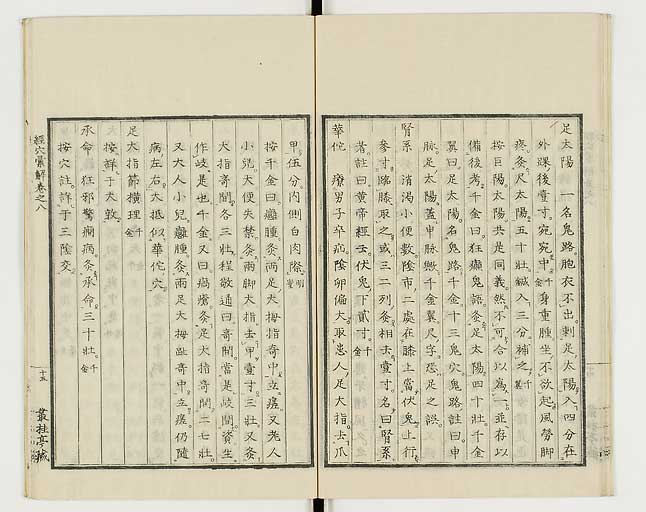 足太陽 一名鬼路。胞衣不出。刺足太陽入四分在
外踝後壹寸。宛宛中。千金身重腫坐不欲起風勞脚
疼。灸足太陽五十壯。鍼入三分。補之。千翼
按巨陽太陽共是同義。然不可合以為一。並存以
備後考。千金曰。狂癲鬼語。灸足太陽四十壯。千金
翼曰。足太陽名鬼路。千金十三鬼穴。鬼路註曰。申
脉。足太陽。蓋申脉歟。千金翼尺字。恐足之誤。
腎系 消渴小便數。陰市二處。在膝上當伏兔上行
參寸。臨膝取之。或三二列灸。相去壹寸。名曰腎系
者。註曰。黃帝經云。伏兔下貳寸。千金
華佗 療男子卒疝。陰卵偏大。取患人足大指去爪
甲伍分。內側白肉際。
按千金曰。癰腫灸兩足大拇指奇中。立瘥。又老人
小兒大便失禁。灸兩脚大指去甲壹寸三壯。又灸
大指奇間各三壯。程敬通曰。奇間當是岐間。資生
作岐是也。千金又曰。瘑瘡灸足大指奇間二七壯。
又大人小兒癰腫灸兩足大拇趾奇中。立瘥。仍隨
病左右。大抵似華佗穴。
足大指節橫理 千金
按詳于大敦。
承命 狂邪驚癇病。灸承命三十壯。千金
按穴註詳于三陰交。
經穴彙解卷之八
十五
叢桂亭藏